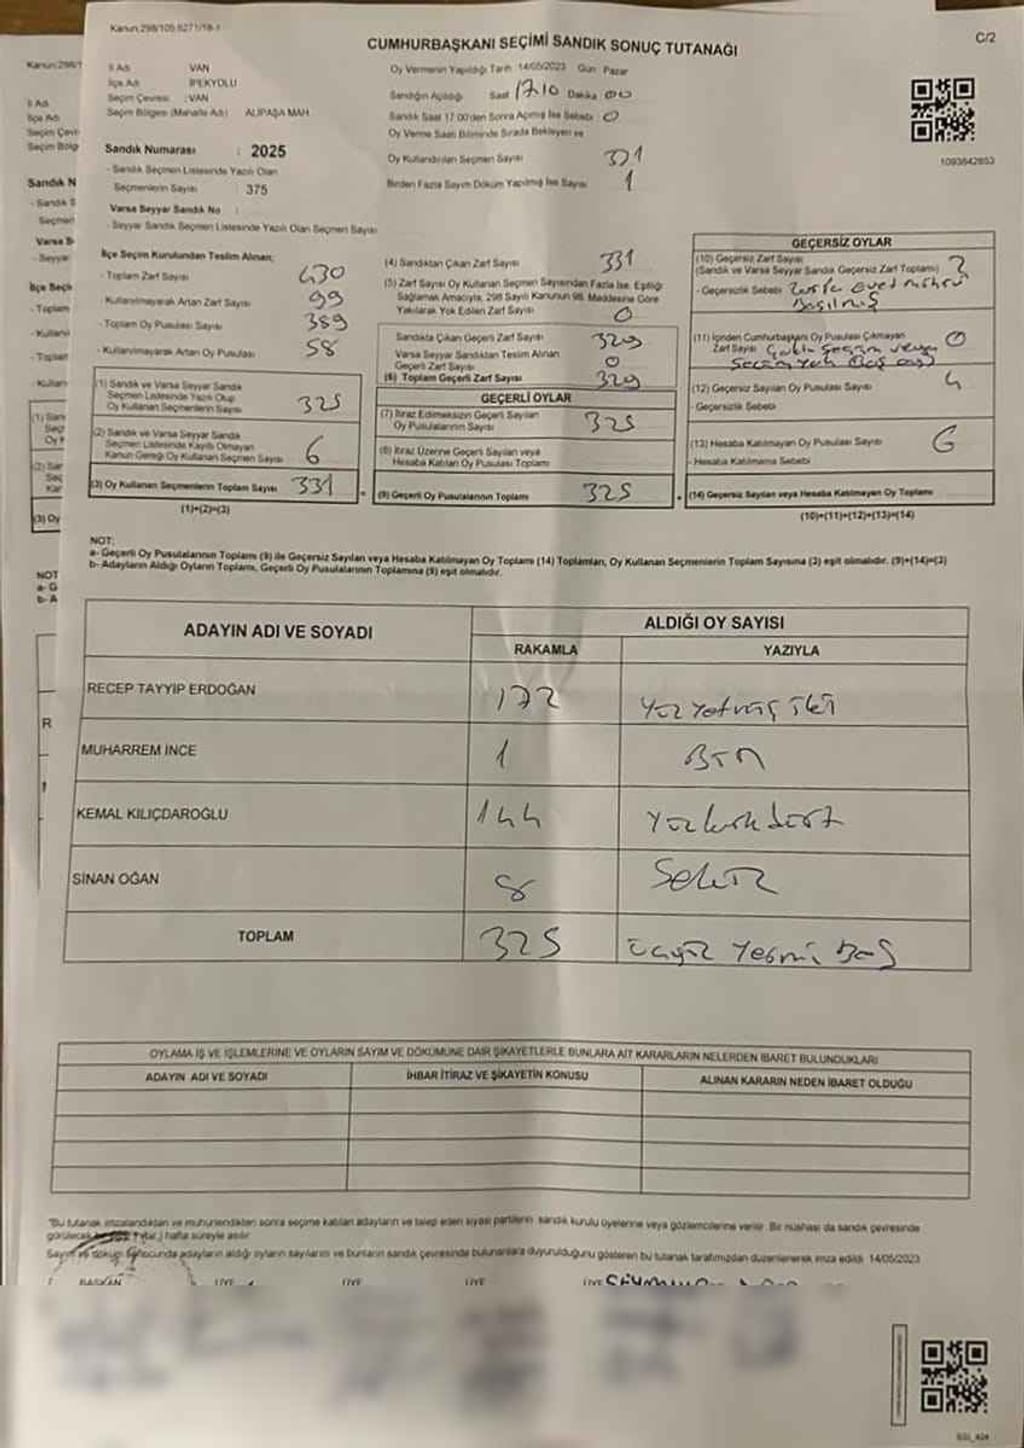 Kanun:298/105.6271/18-1
C/2
CUMHURBAŞKANI SEÇİMİ SANDIK SONUÇ TUTANAĞI
İl Adı VAN
İlçe Adı İPEKYOLU
Seçim Çevresi :VAN
Seçim Bölgesi (Mahalle Adı) ALİPAŞA MAH.
Oy Vermenin Yapıldığı Tarih 14/05/2023 Gün: Pazar
Sandığın Açıldığı Saat 17.10 Dakika 00
Sandık Saat 17:00'den Sonra Açılmış İse Sebebi: 0
Oy Verme Saati Bitiminde Sırada Bekleyen ve
Oy Kullandırılan Seçmen Sayısı 331
Birden Fazla Sayım Döküm Yapılmış İse Sayısı 1
1093642853
Sandık Numarası : 2025
- Sandık Seçmen Listesinde Yazılı Olan
Seçmenlerin Sayısı 375
Varsa Seyyar Sandık No :
- Seyyar Sandık Seçmen Listesinde Yazılı Olan Seçmen Sayısı
İlçe Seçim Kurulundan Teslim Alınan;
- Toplam Zarf Sayısı 430
- Kullanılmayarak Artan Zarf Sayısı 99
- Toplam Oy Pusulası Sayısı 389
- Kullanılmayarak Artan Oy Pusulası 58
(1) Sandık ve Varsa Seyyar Sandık
Seçmen Listesinde Yazılı Olup
Oy Kullanan Seçmenlerin Sayısı 325
(2) Sandık ve Varsa Seyyar Sandık
Seçmen Listesinde Kayıtlı Olmayan
Kanun Gereği Oy Kullanan Seçmen Sayısı 6
(3) Oy Kullanan Seçmenlerin Toplam Sayısı 331
(1)+(2)=(3)
(4) Sandıktan Çıkan Zarf Sayısı 331
(5) Zarf Sayısı Oy Kullanan Seçmen Sayısından Fazla İse, Eşitliği
Sağlamak Amacıyla, 298 Sayılı Kanunun 98. Maddesine Göre
Yakılarak Yok Edilen Zarf Sayısı 0
Sandıkta Çıkan Geçerli Zarf Sayısı 329
Varsa Seyyar Sandıktan Teslim Alınan
Geçerli Zarf Sayısı 0
(6) Toplam Geçerli Zarf Sayısı 329
GEÇERLİ OYLAR
(7) İtiraz Edilmeksizin Geçerli Sayılan
Oy Pusulalarının Sayısı 325
(8) İtiraz Üzerine Geçerli Sayılan veya
Hesaba Katılan Oy Pusulası Toplamı
(9) Geçerli Oy Pusulalarının Toplamı 325
GEÇERSİZ OYLAR
(10) Geçersiz Zarf Sayısı
(Sandık ve Varsa Seyyar Sandık Geçersiz Zarf Toplamı) 2
- Geçersizlik Sebebi: Zarfa evet mührü
Basılmış
(11) İçinden Cumhurbaşkanı Oy Pusulası Çıkmayan
Zarf Sayısı 0
(12) Geçersiz Sayılan Oy Pusulası Sayısı 4
- Geçersizlik Sebebi
(13) Hesaba Katılmayan Oy Pusulası Sayısı 6
- Hesaba Katılmama Sebebi
(14) Geçersiz Sayılan veya Hesaba Katılmayan Oy Toplamı
(10)+(11)+(12)+(13)=(14)
NOT:
a- Geçerli Oy Pusulalarının Toplamı (9) ile Geçersiz Sayılan veya Hesaba Katılmayan Oy Toplamı (14) Toplamları, Oy Kullanan Seçmenlerin Toplam Sayısına (3) eşit olmalıdır. (9)+(14)=(3)
b- Adayların Aldığı Oyların Toplamı, Geçerli Oy Pusulalarının Toplamına (9) eşit olmalıdır.
ADAYIN ADI VE SOYADI ALDIĞI OY SAYISI
RAKAMLA YAZIYLA
RECEP TAYYİP ERDOĞAN 172 Yüz Yetmiş iki
MUHARREM İNCE 1 Bir
KEMAL KILIÇDAROĞLU 144 Yüzkırkdört
SİNAN OĞAN 8 Sekiz
TOPLAM 325 üçyüz Yirmi Beş
OYLAMA İŞ VE İŞLEMLERİNE VE OYLARIN SAYIM VE DÖKÜMÜNE DAİR ŞİKAYETLERLE BUNLARA AİT KARARLARIN NELERDEN İBARET BULUNDUKLARI
ADAYIN ADI VE SOYADI İHBAR İTİRAZ VE ŞİKAYETİN KONUSU ALINAN KARARIN NEDEN İBARET OLDUĞU
"Bu tutanak imzalandıktan ve mühürlendikten sonra seçime katılan adayların ve talep eden siyasi partilerin sandık kurulu üyelerine veya gözlemcilerine verilir. Bir nüshası da sandık çevresinde
hafta süreyle asılır.
Sayım ve döküm sonucunda adayların aldığı oyların sayılarını ve bunların sandık çevresinde bulunanlara duyurulduğunu gösteren bu tutanak tarafımızdan düzenlenerek imza edildi. 14/05/2023
BAŞKAN ÜYE ÜYE ÜYE ÜYE